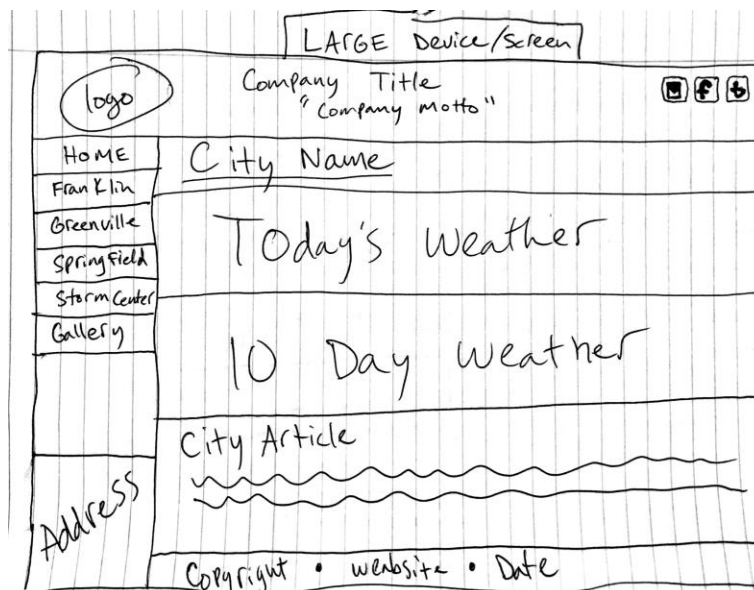 LArGE Device/Screen
logo
Company Title
"Company Motto"
M f t
HOME
Franklin
Greenville
Springfield
Storm Center
Gallery
Address
City Name
Today's Weather
10 Day Weather
City Article
Copyright • weabsite • Date